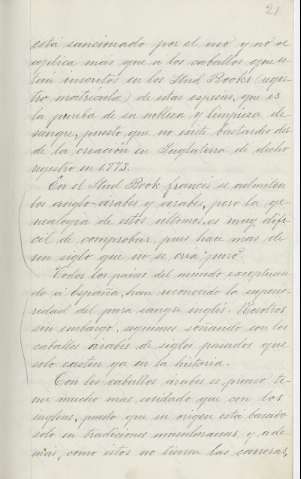 21
está sancionado por el uso y no se
aplica mas que a los caballos que es-
tan inscritos en los Stud Book's (regis-
tro matricula) de estas especies, que es
la prueba de su nobleza y limpieza de
sangre, puesto que no existe bastardo des-
de la creación en Inglaterra de dicho
registro en 1773.
En el Stud Book francés se admiten
los anglo-arabes y arabes, pero la ge-
nealogia de estos ultimos es muy difi-
cil de comprobar, pues hace mas de
un siglo que no se cria "puro".
Todos los paises del mundo exceptuan-
do a España, han reconocido la superio-
ridad del pura sangre inglés. Nosotros
sin embargo, seguimos soñando con los
caballos árabes de siglos pasados que
solo existen ya en la historia.
Con los caballos árabes es preciso te-
ner mucho mas cuidado que con los
ingleses, puesto que su origen está basado
solo en tradiciones musulmanas y ade-
mas, como estos no tienen las carreras,